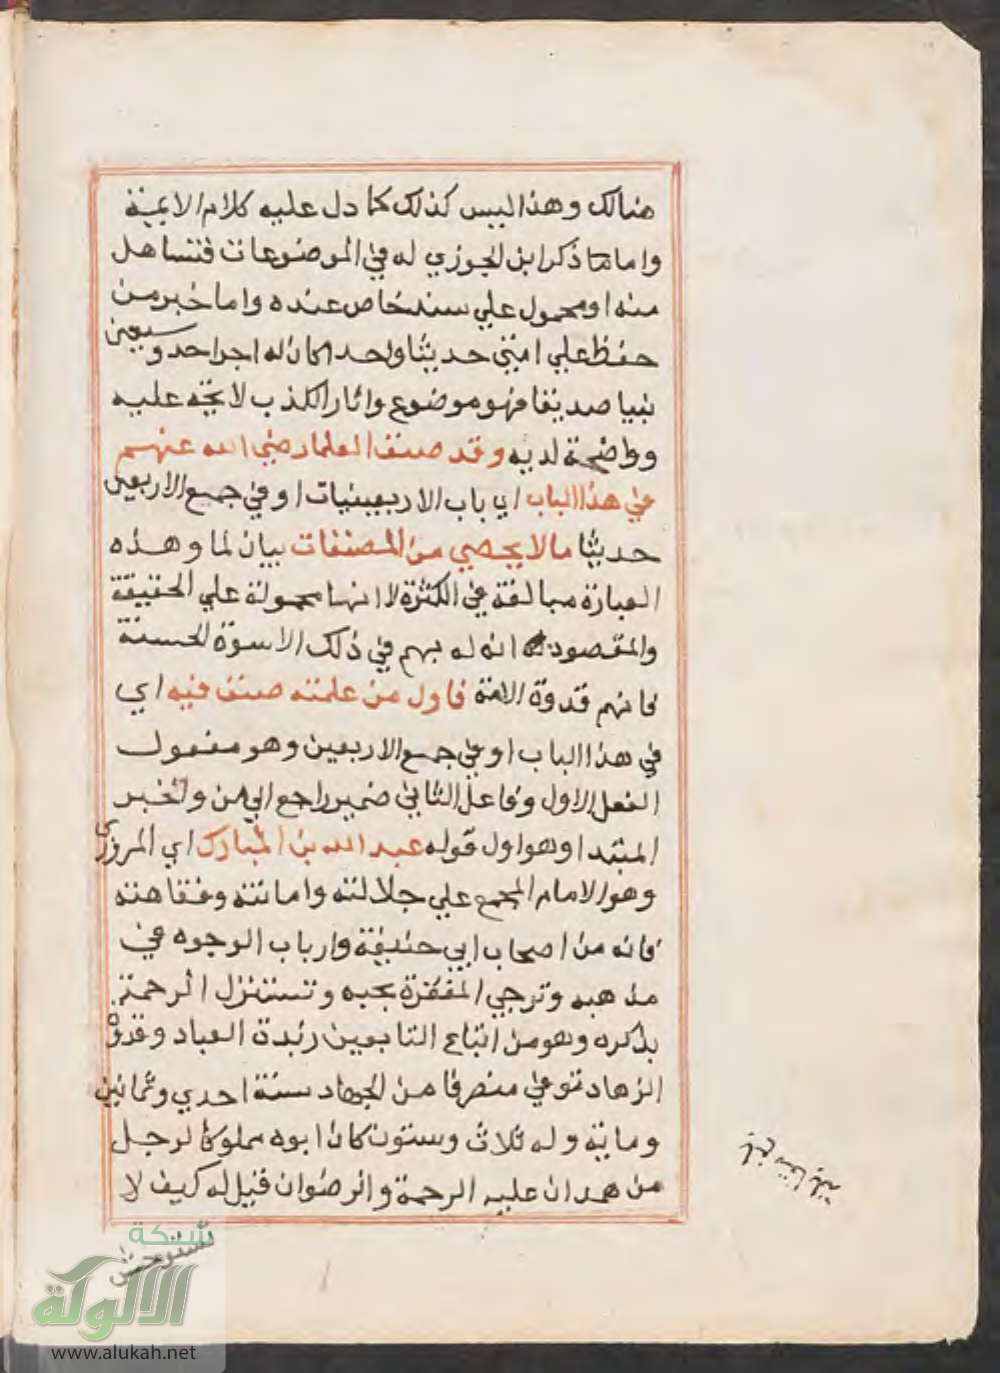 هنالك وهذا ليس كذلك كما دل عليه كلام الايمة
واما ما ذكر ابن الجوزي له في الموضوعات فتساهل
منه او محمول علي سند خاص عنده واما خبر من
حفظ علي امتي حديثا واحدا كان له اجر احد وسبعين
نبيا صديقا فهو موضوع واثار الكذب لايحة عليه
وواضحة لديه وقد صنف العلما رضي الله عنهم
في هذا الباب اي باب الاربعينيات او في جمع الاربعين
حديثا ما لا يحصي من المصنفات بيان لما وهذه
العبارة مبالغة في الكثرة لا انها محمولة علي الحقيقة
والمقصود ان له بهم في ذلك الاسوة الحسنة
فانهم قدوة الامة فاول من علمته صنف فيه اي
في هذا الباب او في جمع الاربعين وهو مفعول
الفعل الاول وفاعل الثاني ضمير راجع الي من والخبر
المبتدا وهو اول قوله عبد الله بن المبارك اي المروزي
وهو الامام المجمع علي جلالته وامانته وفقاهته
فانه من اصحاب ابي حنيفة وارباب الوجوه في
مذهبه وترجي المغفرة بحبه وتستنزل الرحمة
بذكره وهو من اتباع التابعين زبدة العباد وقدوة
الزهاد توفي منصرفا من الجهاد سنة احدي وثمانين
وماية وله ثلاث وستون كان ابوه مملوكا لرجل
من همدان عليه الرحمة والرضوان قيل له كيف لا
تستوحش
شبكة
الألوكة
www.alukah.net